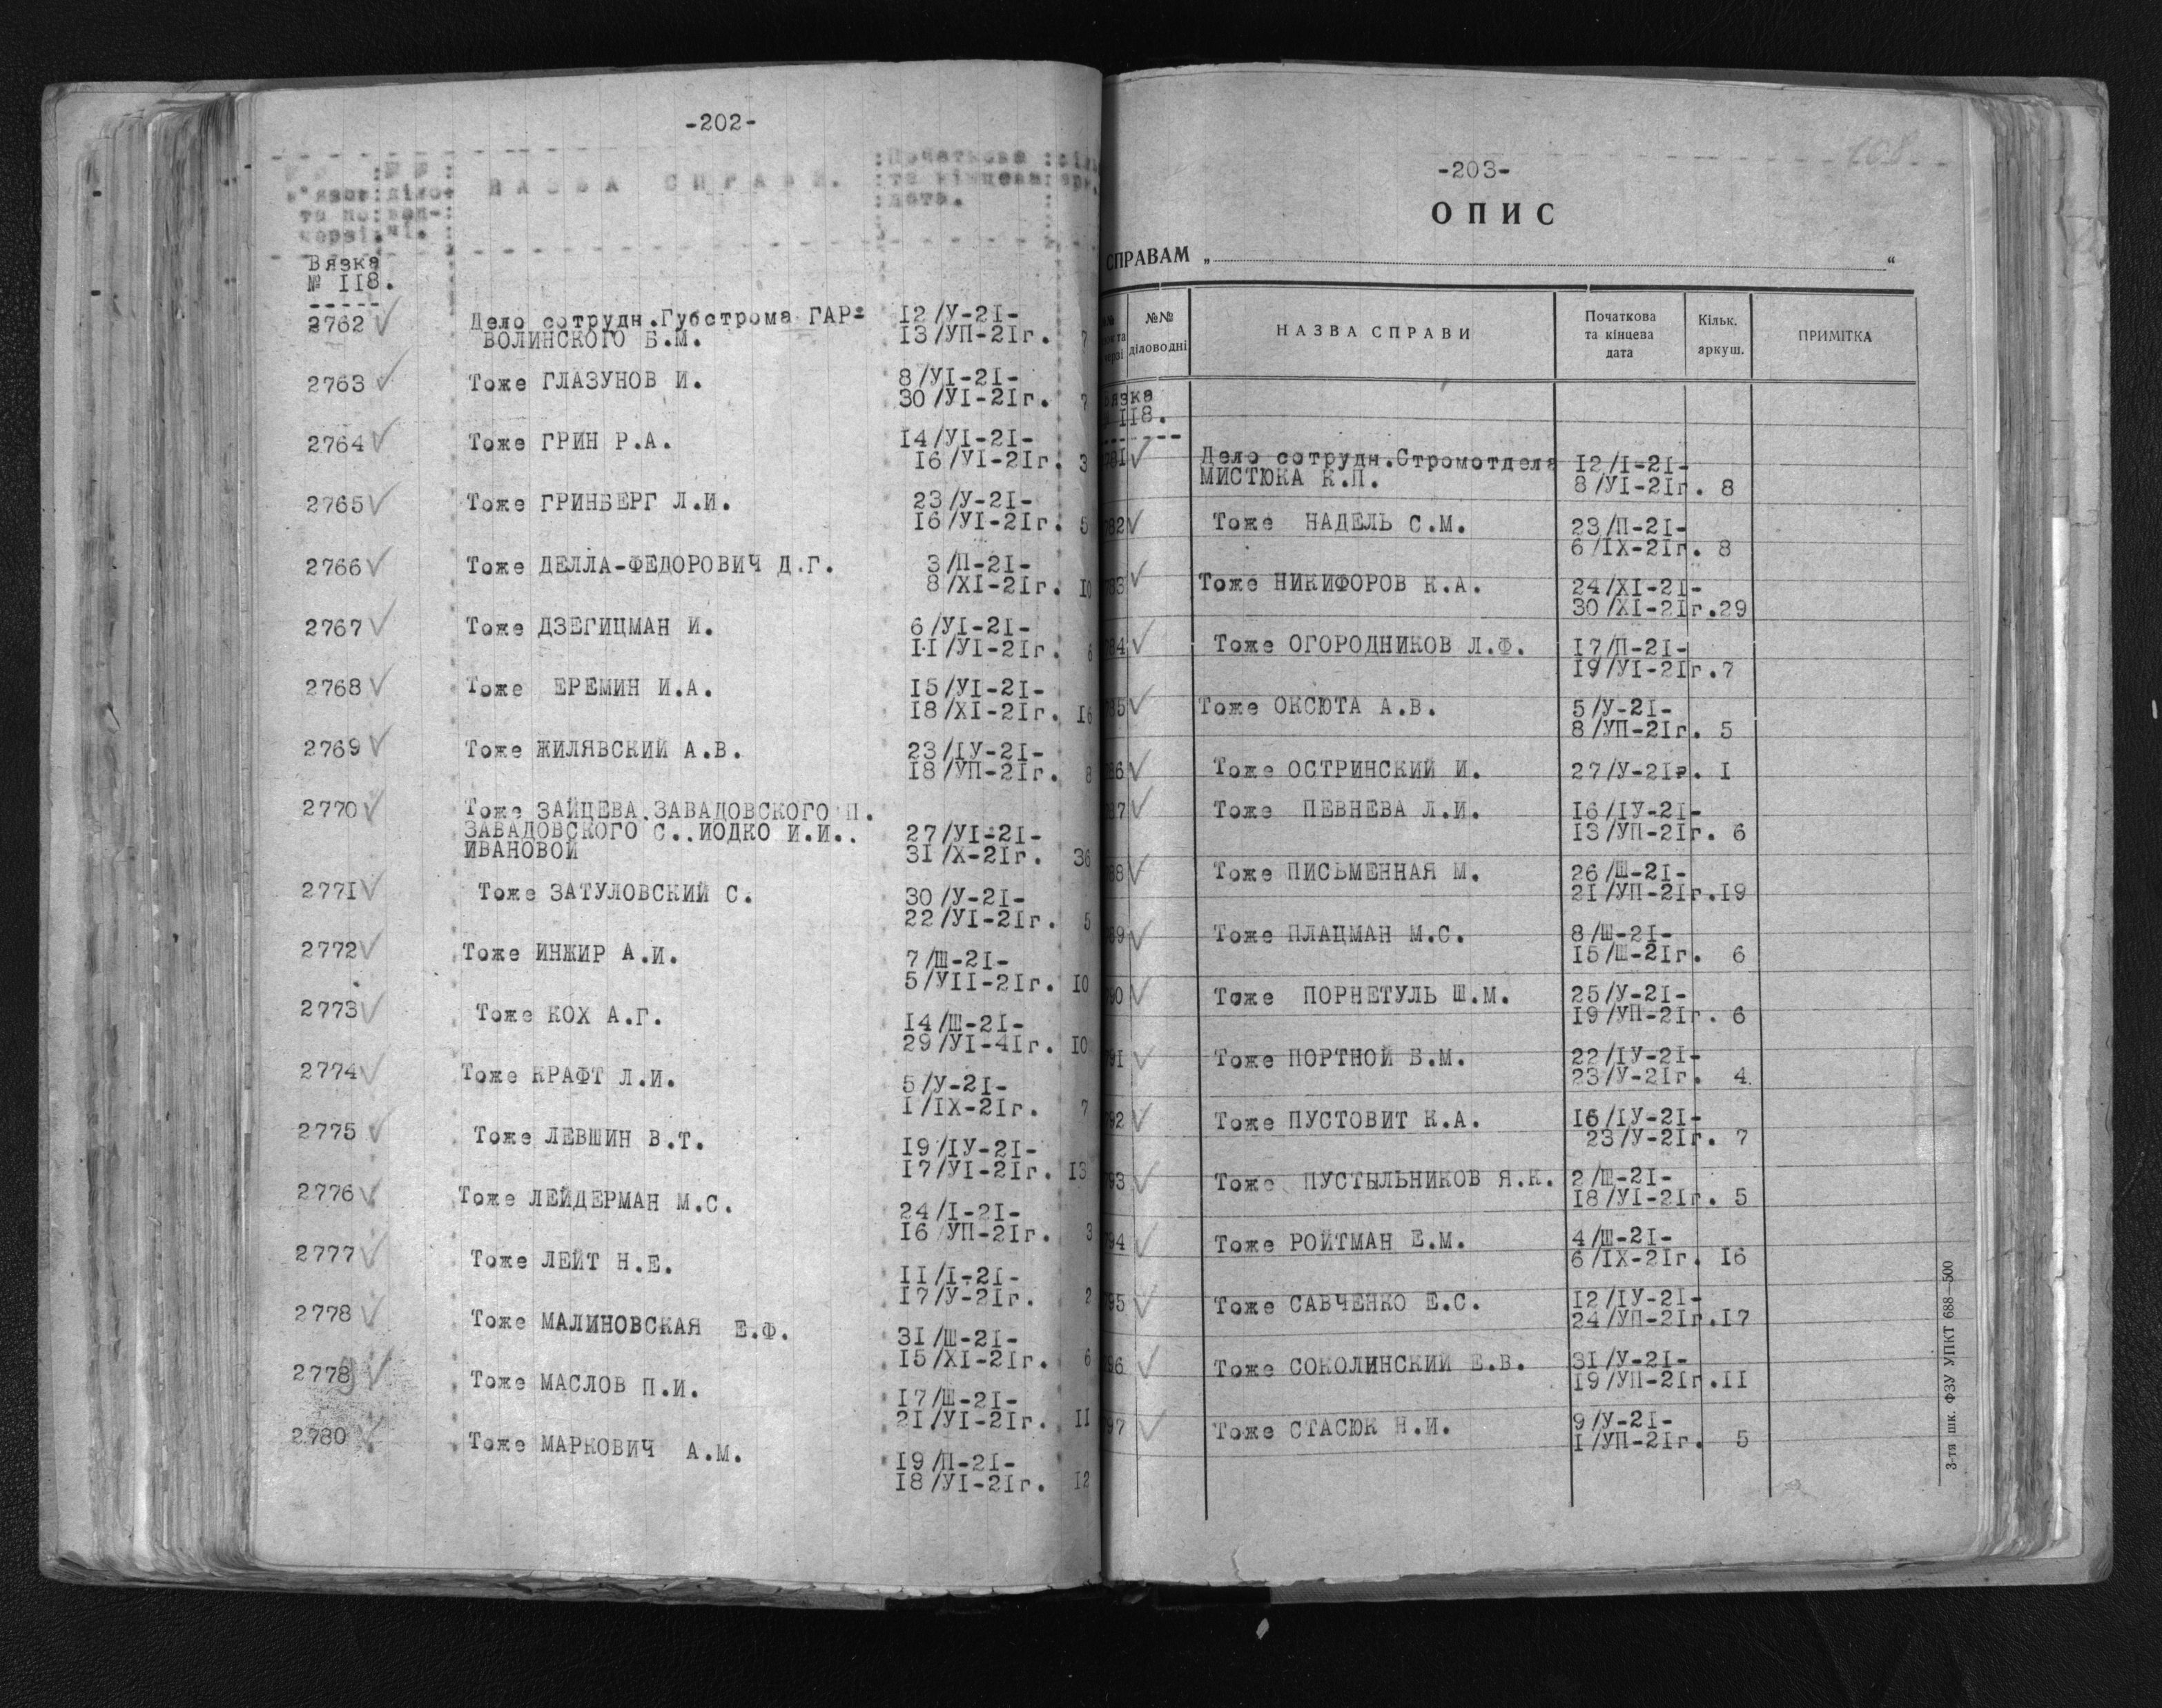 -202-
НАЗВА СПРАВИ.
Початкова
та кінцева
дата.
Вязка
№ II8.
2762 Дело сотрудн.Губстрома ГАР- I2/У-2I-
ВОЛИНСКОГО Б.М. I3/УП-2Iг. 7
2763 Тоже ГЛАЗУНОВ И. 8/УI-2I-
30/УI-2Iг. 7
2764 Тоже ГРИН Р.А. I4/УI-2I-
I6/УI-2Iг. 3
2765 Тоже ГРИНБЕРГ Л.И. 23/У-2I-
I6/УI-2Iг. 5
2766 Тоже ДЕЛЛА-ФЕДОРОВИЧ Д.Г. 3/П-2I-
8/XI-2Iг. I0
2767 Тоже ДЗЕГИЦМАН И. 6/УI-2I-
II/УI-2Iг. 6
2768 Тоже ЕРЕМИН И.А. I5/УI-2I-
I8/XI-2Iг. I6
2769 Тоже ЖИЛЯВСКИЙ А.В. 23/IУ-2I-
I8/УП-2Iг. 8
2770 Тоже ЗАЙЦЕВА.ЗАВАДОВСКОГО П.
ЗАВАДОВСКОГО С..ИОДКО И.И.. 27/УI-2I-
ИВАНОВОЙ 3I/X-2Iг. 36
277I Тоже ЗАТУЛОВСКИЙ С. 30/У-2I-
22/УI-2Iг. 5
2772 Тоже ИНЖИР А.И. 7/Ш-2I-
5/УII-2Iг. I0
2773 Тоже КОХ А.Г. I4/Ш-2I-
29/УI-4Iг. I0
2774 Тоже КРАФТ Л.И. 5/У-2I-
I/IX-2Iг. 7
2775 Тоже ЛЕВШИН В.Т. I9/IУ-2I-
I7/УI-2Iг. I3
2776 Тоже ЛЕЙДЕРМАН М.С. 24/I-2I-
I6/УП-2Iг. 3
2777 Тоже ЛЕЙТ Н.Е. II/I-2I-
I7/У-2Iг. 2
2778 Тоже МАЛИНОВСКАЯ Е.Ф. 3I/Ш-2I-
I5/XI-2Iг. 6
2779 Тоже МАСЛОВ П.И. I7/Ш-2I-
2I/УI-2Iг. II
2780 Тоже МАРКОВИЧ А.М. I9/П-2I-
I8/УI-2Iг. I2
108
-203-
ОПИС
СПРАВАМ „ “
№№ діловодні
НАЗВА СПРАВИ
Початкова
та кінцева
дата
Кільк.
аркуш.
ПРИМІТКА
вязка
II8.
78I Дело сотрудн.Стромотдела I2/I-2I-
МИСТЮКА К.П. 8/УI-2Iг. 8
82 Тоже НАДЕЛЬ С.М. 23/П-2I-
6/IX-2Iг. 8
783 Тоже НИКИФОРОВ К.А. 24/XI-2I-
30/XI-2Iг.29
84 Тоже ОГОРОДНИКОВ Л.Ф. I7/П-2I-
I9/УI-2Iг.7
785 Тоже ОКСЮТА А.В. 5/У-2I-
8/УП-2Iг. 5
86 Тоже ОСТРИНСКИЙ И. 27/У-2Iг. I
87 Тоже ПЕВНЕВА Л.И. I6/IУ-2I-
I3/УП-2Iг. 6
88 Тоже ПИСЬМЕННАЯ М. 26/Ш-2I-
2I/УП-2Iг.I9
789 Тоже ПЛАЦМАН М.С. 8/Ш-2I-
I5/Ш-2Iг. 6
790 Тоже ПОРНЕТУЛЬ Ш.М. 25/У-2I-
I9/УП-2Iг. 6
79I Тоже ПОРТНОЙ Б.М. 22/IУ-2I-
23/У-2Iг. 4
792 Тоже ПУСТОВИТ К.А. I6/IУ-2I-
23/У-2Iг. 7
793 Тоже ПУСТЫЛЬНИКОВ Я.К. 2/Ш-2I-
I8/УI-2Iг. 5
794 Тоже РОЙТМАН Е.М. 4/Ш-2I-
6/IX-2Iг. I6
795 Тоже САВЧЕНКО Е.С. I2/IУ-2I-
24/УП-2Iг.I7
796 Тоже СОКОЛИНСКИЙ Е.В. 3I/У-2I-
I9/УП-2Iг.II
797 Тоже СТАСЮК Н.И. 9/У-2I-
I/УП-2Iг. 5
3-тя шк. ФЗУ УПКТ 688—500